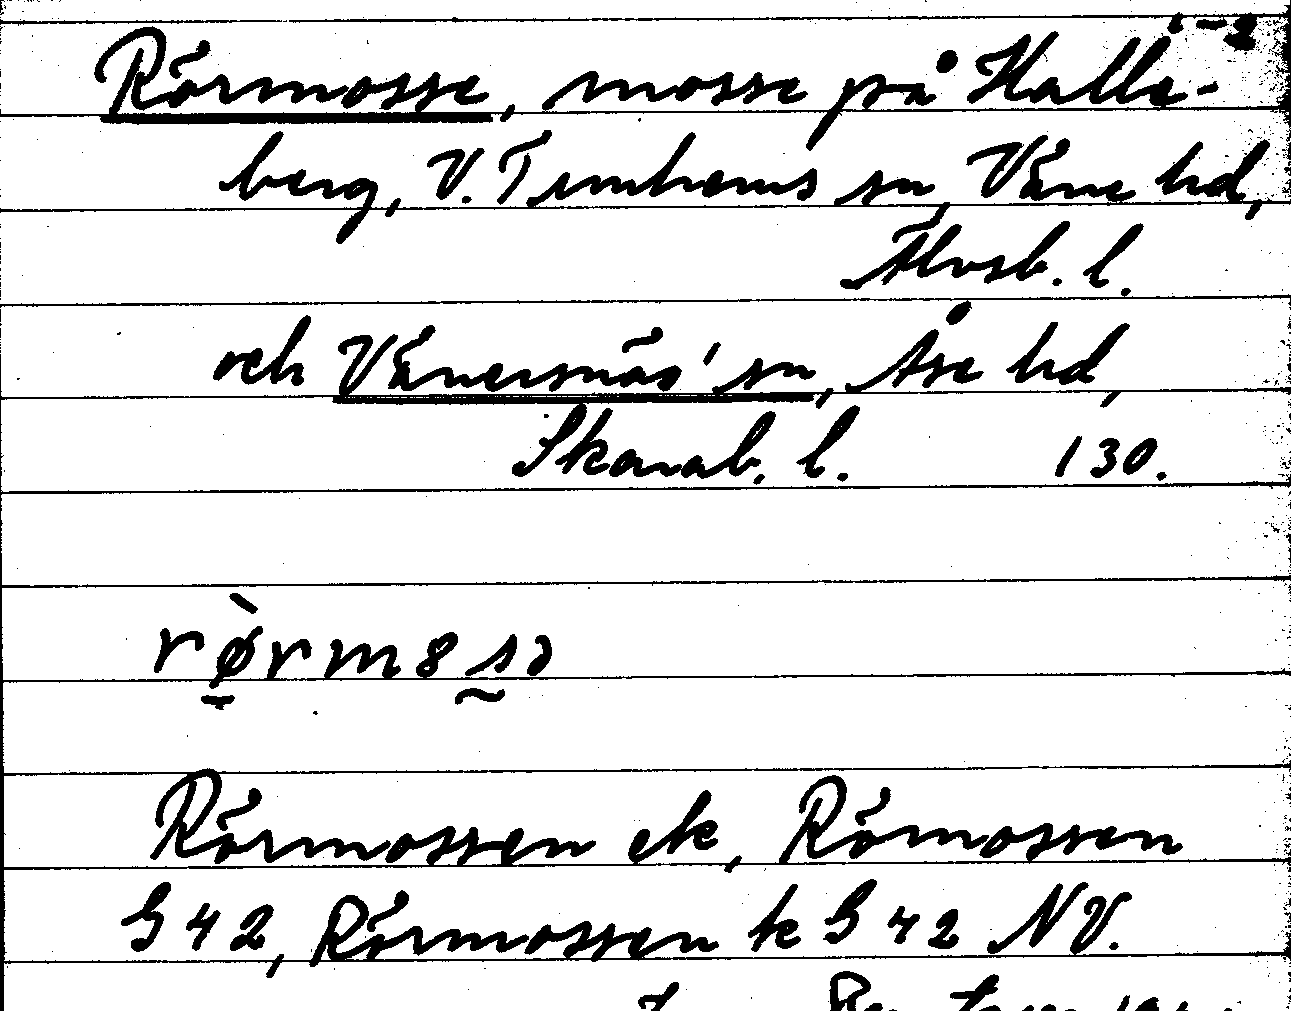 1-2
Rörmosse, mosse på Halle-
berg, V. Tunhems sn, Väne hd,
Älvsb. l.
och Vänersnäs' sn, Åse hd,
Skarab. l. 130.
rø̀rm8sə
Rörmossen ek, Römossen
G 42, Rörmossen k G 42 NV.